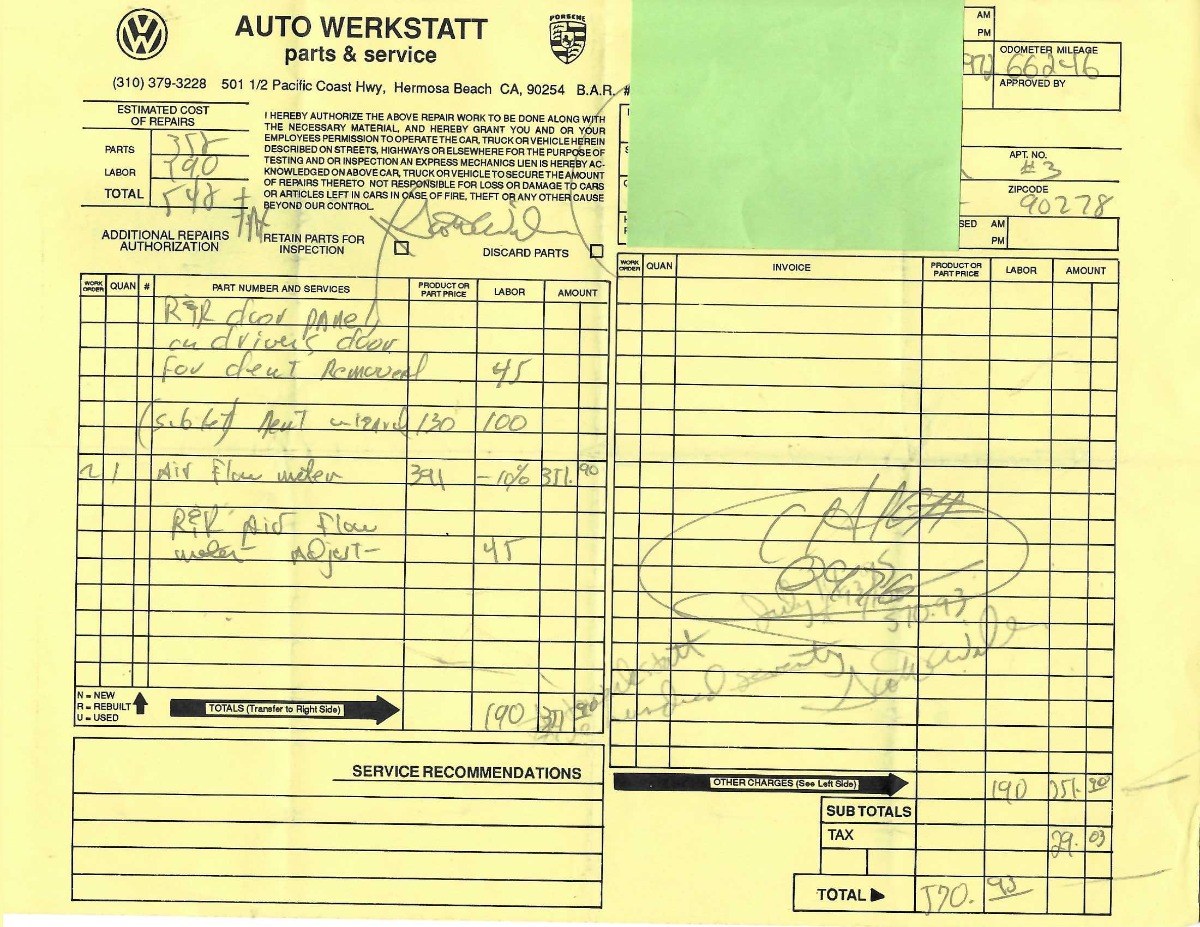 AUTO WERKSTATT
parts & service
PORSCHE
(310) 379-3228 501 1/2 Pacific Coast Hwy, Hermosa Beach CA, 90254 B.A.R. #
AM
PM
ODOMETER MILEAGE
66246
APPROVED BY
APT. NO.
#3
ZIPCODE
90278
AM
PM
ESTIMATED COST
OF REPAIRS
PARTS 352
LABOR 190
TOTAL 542
+ TAX
I HEREBY AUTHORIZE THE ABOVE REPAIR WORK TO BE DONE ALONG WITH
THE NECESSARY MATERIAL, AND HEREBY GRANT YOU AND OR YOUR
EMPLOYEES PERMISSION TO OPERATE THE CAR, TRUCK OR VEHICLE HEREIN
DESCRIBED ON STREETS, HIGHWAYS OR ELSEWHERE FOR THE PURPOSE OF
TESTING AND OR INSPECTION AN EXPRESS MECHANICS LIEN IS HEREBY AC-
KNOWLEDGED ON ABOVE CAR, TRUCK OR VEHICLE TO SECURE THE AMOUNT
OF REPAIRS THERETO NOT RESPONSIBLE FOR LOSS OR DAMAGE TO CARS
OR ARTICLES LEFT IN CARS IN CASE OF FIRE, THEFT OR ANY OTHER CAUSE
BEYOND OUR CONTROL.
ADDITIONAL REPAIRS
AUTHORIZATION
RETAIN PARTS FOR
INSPECTION
DISCARD PARTS
WORK ORDER QUAN # PART NUMBER AND SERVICES PRODUCT OR PART PRICE LABOR AMOUNT
R&R door panel
on drivers door
for dent Removal 45
(sublet) Dent wizard 130 100
1 Air Flow meter 391 -10% 351.90
R&R Air Flow
meter Adjust- 45
N = NEW
R = REBUILT
U = USED
TOTALS (Transfer to Right Side) 190 351 90
SERVICE RECOMMENDATIONS
WORK ORDER QUAN INVOICE PRODUCT OR PART PRICE LABOR AMOUNT
July
570.93
seventy
OTHER CHARGES (See Left Side) 190 351.90
SUB TOTALS
TAX 29.03
TOTAL 570.93